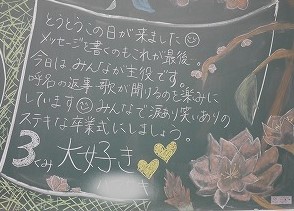 とうとうこの日が来ました☺
メッセージを書くのもこれが最後。
今日はみんなが主役です。
呼名の返事・歌が聞けるのを楽みに
しています☺みんなで涙あり笑いありの
ステキな卒業式にしましょう。
3くみ 大好き